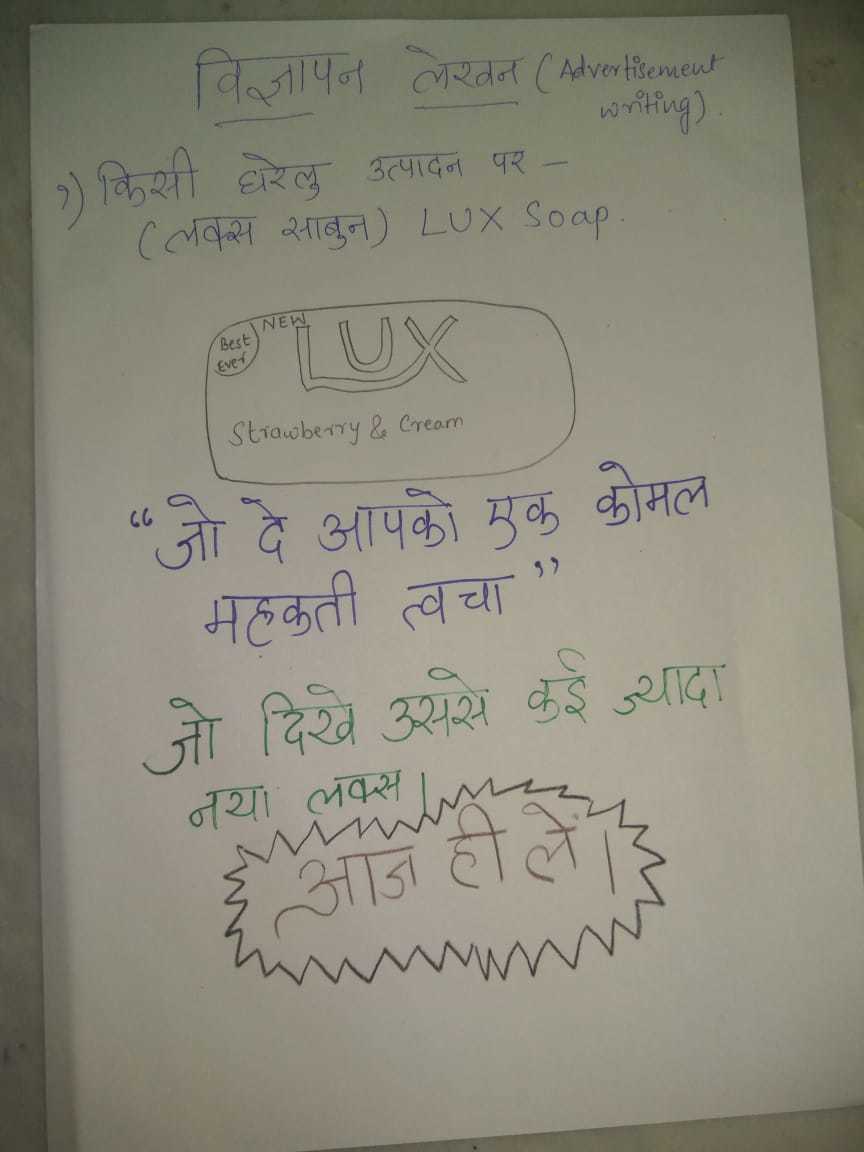 विज्ञापन लेखन (Advertisement
writing).
१) किसी घरेलु उत्पादन पर –
(लक्स साबुन) LUX Soap.
Best
Ever
NEW
LUX
Strawberry & Cream
“जो दे आपको एक कोमल
महकती त्वचा”
जो दिखे उससे कई ज्यादा
नया लक्स।
आज ही लें।